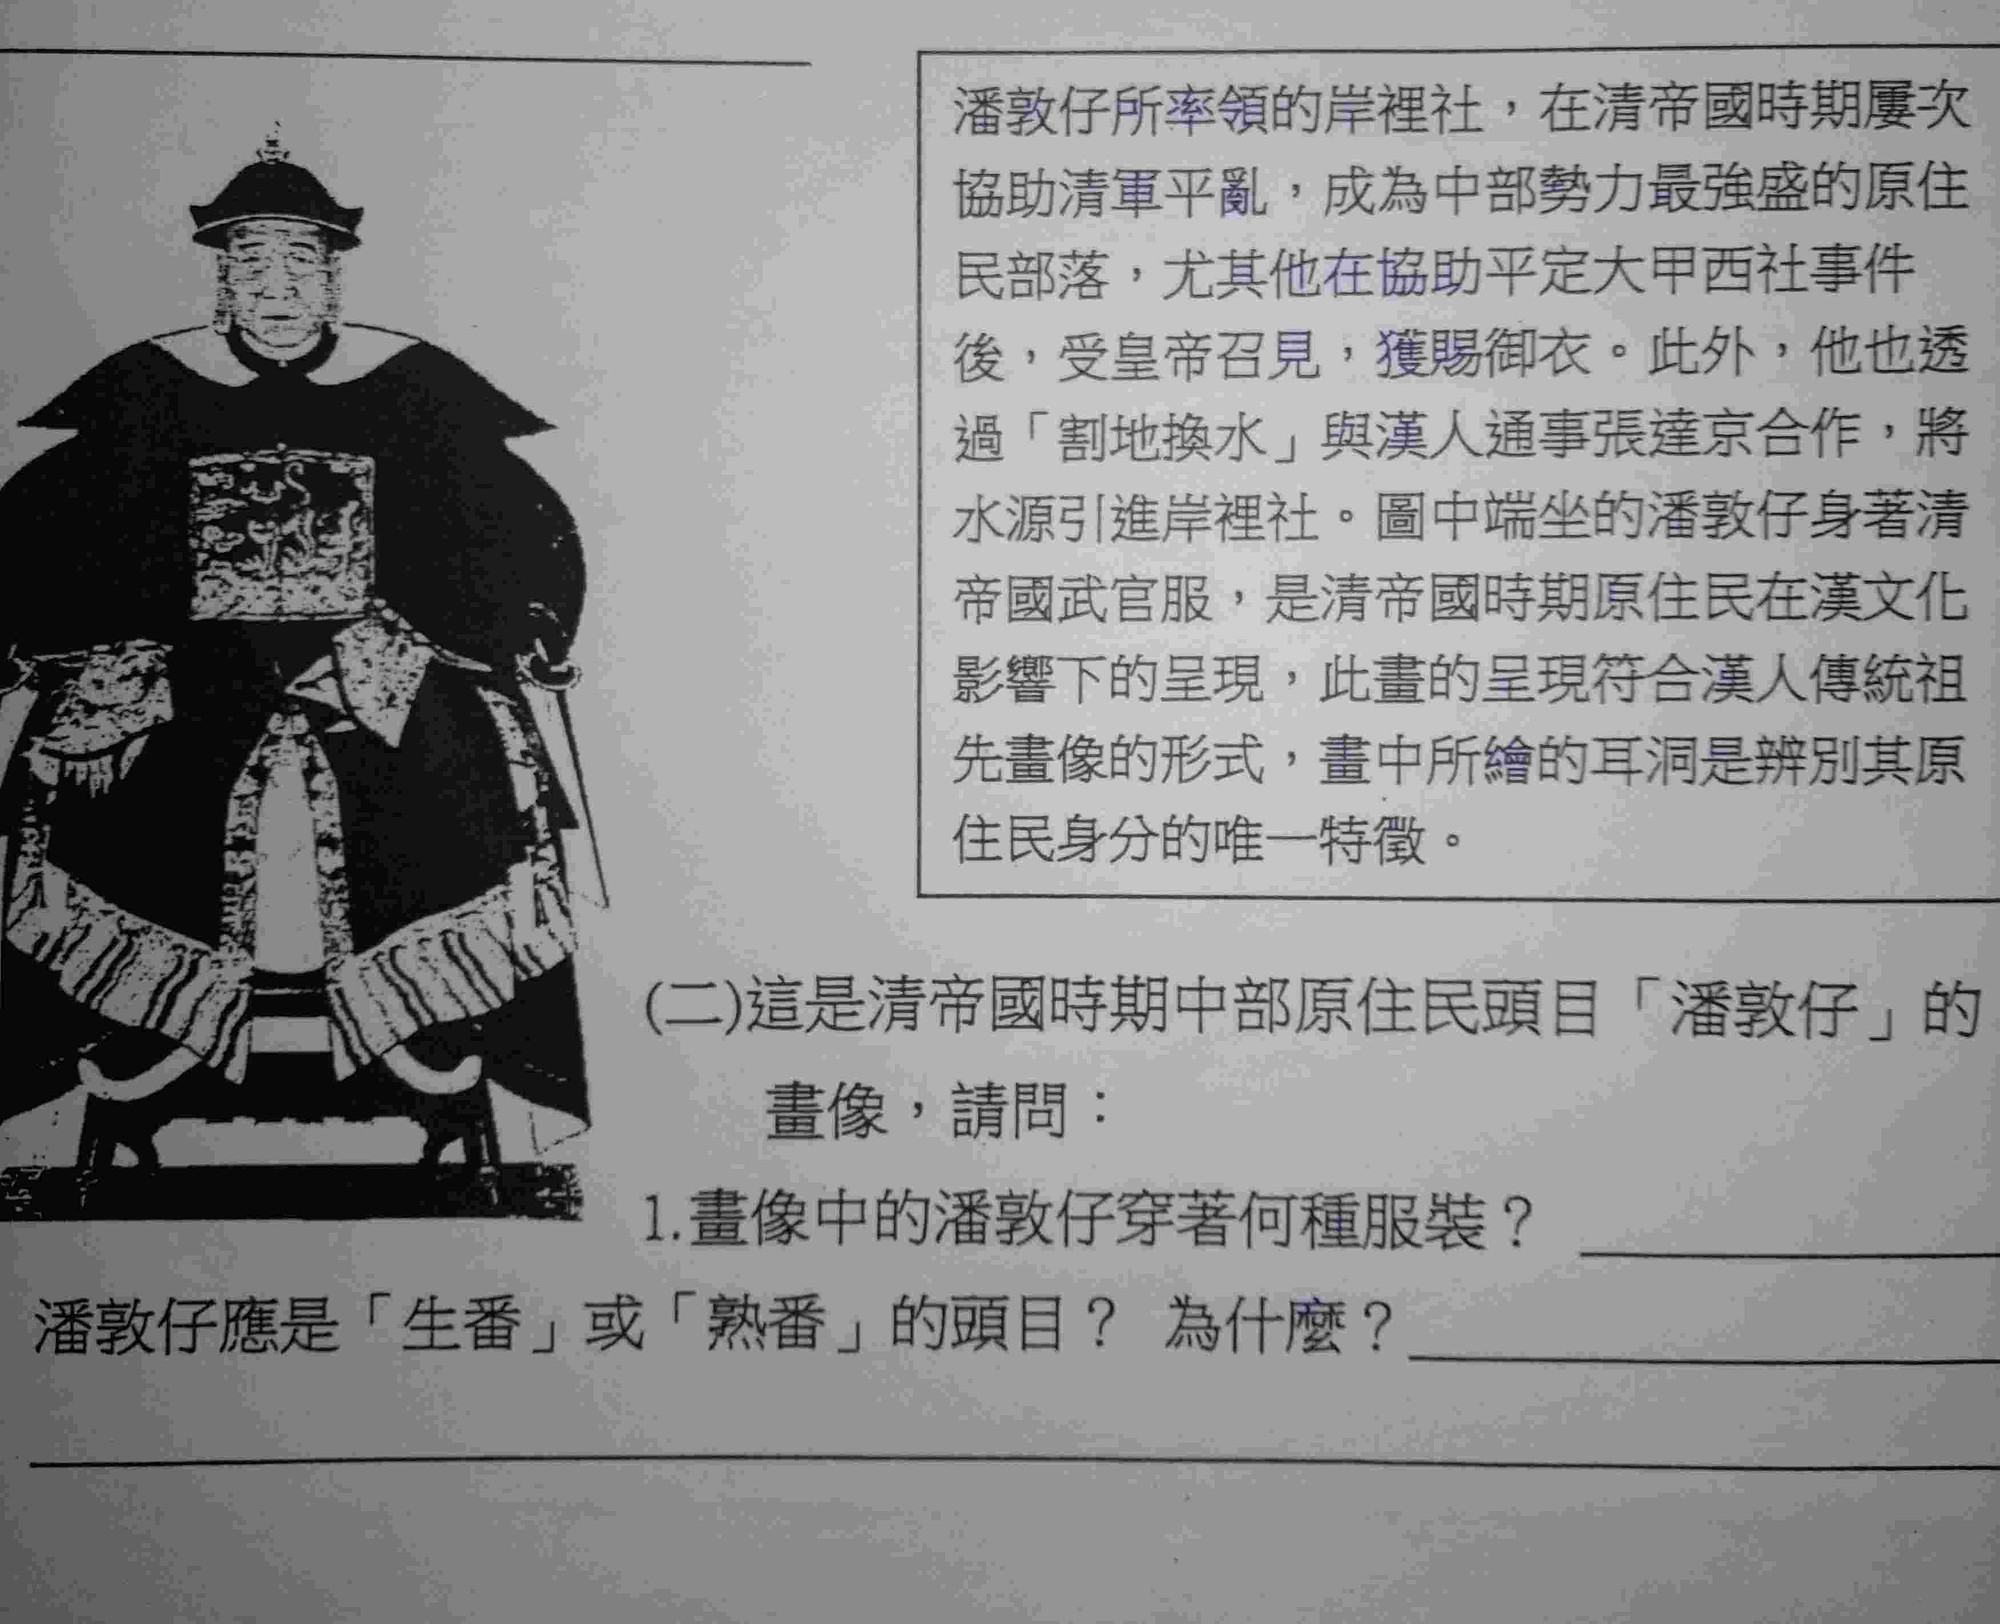 潘敦仔所率領的岸裡社，在清帝國時期屢次
協助清軍平亂，成為中部勢力最強盛的原住
民部落，尤其他在協助平定大甲西社事件
後，受皇帝召見，獲賜御衣。此外，他也透
過「割地換水」與漢人通事張達京合作，將
水源引進岸裡社。圖中端坐的潘敦仔身著清
帝國武官服，是清帝國時期原住民在漢文化
影響下的呈現，此畫的呈現符合漢人傳統祖
先畫像的形式，畫中所繪的耳洞是辨別其原
住民身分的唯一特徵。
(二)這是清帝國時期中部原住民頭目「潘敦仔」的
畫像，請問：
1.畫像中的潘敦仔穿著何種服裝？
潘敦仔應是「生番」或「熟番」的頭目？ 為什麼？